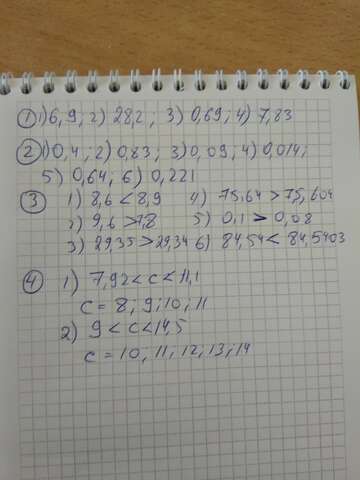 ① 1) 6,9; 2) 28,2, 3) 0,69; 4) 7,83
② 1) 0,4; 2) 0,83; 3) 0,09, 4) 0,014;
5) 0,64, 6) 0,221
③ 1) 8,6 < 8,9 4) 75,64 > 75,604
2) 9,6 > 7,8 5) 0,1 > 0,08
3) 29,35 > 29,34 6) 84,54 < 84,5403
④ 1) 7,92 < c < 11,1
c = 8; 9; 10; 11
2) 9 < c < 14,5
c = 10; 11; 12; 13; 14